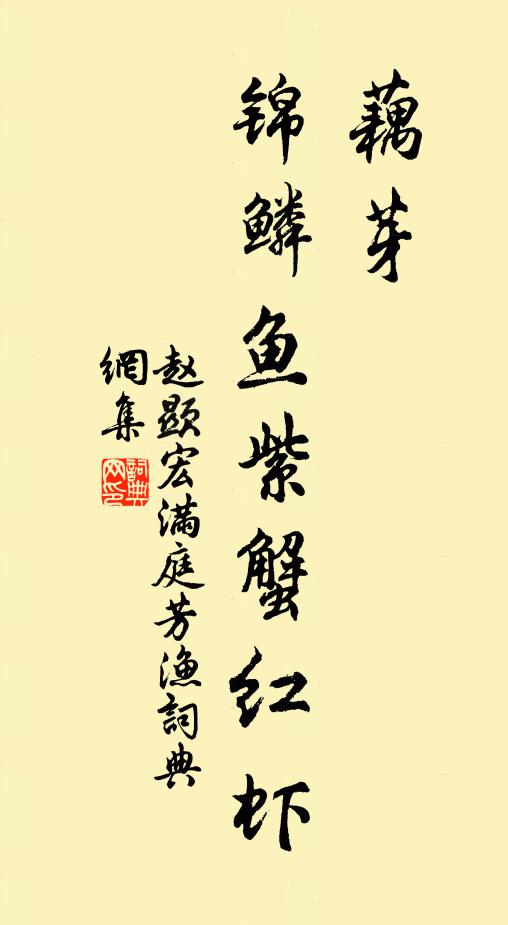 藕芽
锦鳞鱼紫蟹红虾
赵显宏满庭芳渔詞典
網集
詞典
网印